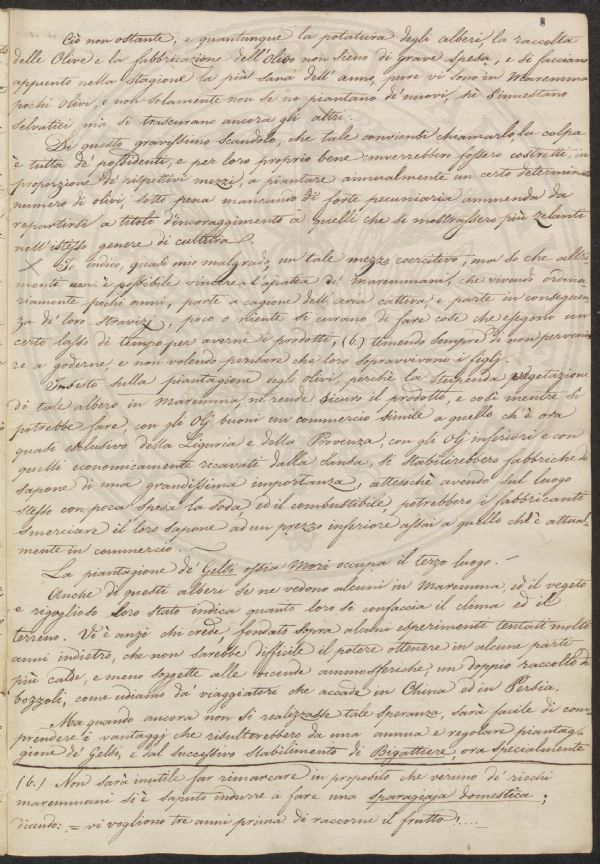 8
Ciò non ostante, e quantunque la potatura degli alberi, la raccolta
delle Olive e la fabbricazione dell'Olio non sieno di grave spesa, e si facciano
appunto nella stagione la più sana dell'anno, pure vi sono in Maremma
pochi Olivi, e non solamente non se ne piantano de' nuovi, nè s'innestano
selvatici mà si trascurano ancora gli altri.
Di questo gravissimo scandolo, che tale conviensi chiamarlo, la colpa
è tutta de' possidenti, e per loro proprio bene converrebbe fossero costretti, in
proporzione de' rispettivi mezzi, a piantare annualmente un certo determinato
numero di olivi, sotto pena mancando di forte pecuniaria ammenda da
repartirsi a titolo d'incoraggimento a quelli che si mostrassero più zelanti
nell'istesso genere di cultura.
Io indico, quasi mio malgrado, un tale mezzo coercitivo, ma so che altri
mente non è possibile vincere l'apatia de' maremmani, che vivendo ordina
riamente pochi anni, parte a cagione dell'aria cattiva e parte in conseguen
za de' loro stravizi, poco o niente si curano di fare cose che esigono un
certo lasso di tempo per averne i prodotti, (6.) temendo sempre di non perveni
re a goderne, e non volendo pensare che loro sopravvivono i figlj.
Insisto sulla piantagione degli olivi, perchè la stupenda vegetazione
di tale albero in Maremma, ne rende sicuro il prodotto, e così mentre si
potrebbe fare, con gli Olj buoni un commercio simile a quello ch'è ora
quasi esclusivo della Liguria e della Provenza, con gli Olj inferiori e con
quelli economicamente ricavati dalla Sansa, si stabilirebbero fabbriche di
sapone di una grandissima importanza, attesochè avendo sul luogo
stesso con poca spesa la soda ed il combustibile, potrebbero i fabbricanti
smerciare il loro sapone ad un prezzo inferiore assai a quello ch'è attual-
mente in commercio.
La piantagione de' Gelsi ossia Mori occupa il terzo luogo.
Anche di questi alberi se ne vedono alcuni in Maremma, ed il vegeto
e rigoglioso loro stato indica quanto loro si confaccia il clima ed il
terreno. Vi è anzi chi crede fondato sopra alcuni esperimenti tentati molti
anni indietro, che non sarebbe difficile il potere ottenere in alcune parti
più calde, e meno soggette alle vicende ammosferiche, un doppio raccolto di
bozzoli, come udiamo da' viaggiatori che accade in China ed in Persia.
Ma quando ancora non si realizzasse tale speranza, sarà facile di com
prendere i vantaggj che risulterebbero da una annua e regolare piantag
gione de' Gelsi, e dal successivo stabilimento di Bigattiere, ora specialmente
(6.) Non sarà inutile far rimarcare in proposito che veruno de' ricchi
maremmani si è saputo indurre a fare una sparagiaja domestica,
dicendo: = vi vogliono tre anni prima di raccorne il frutto!....